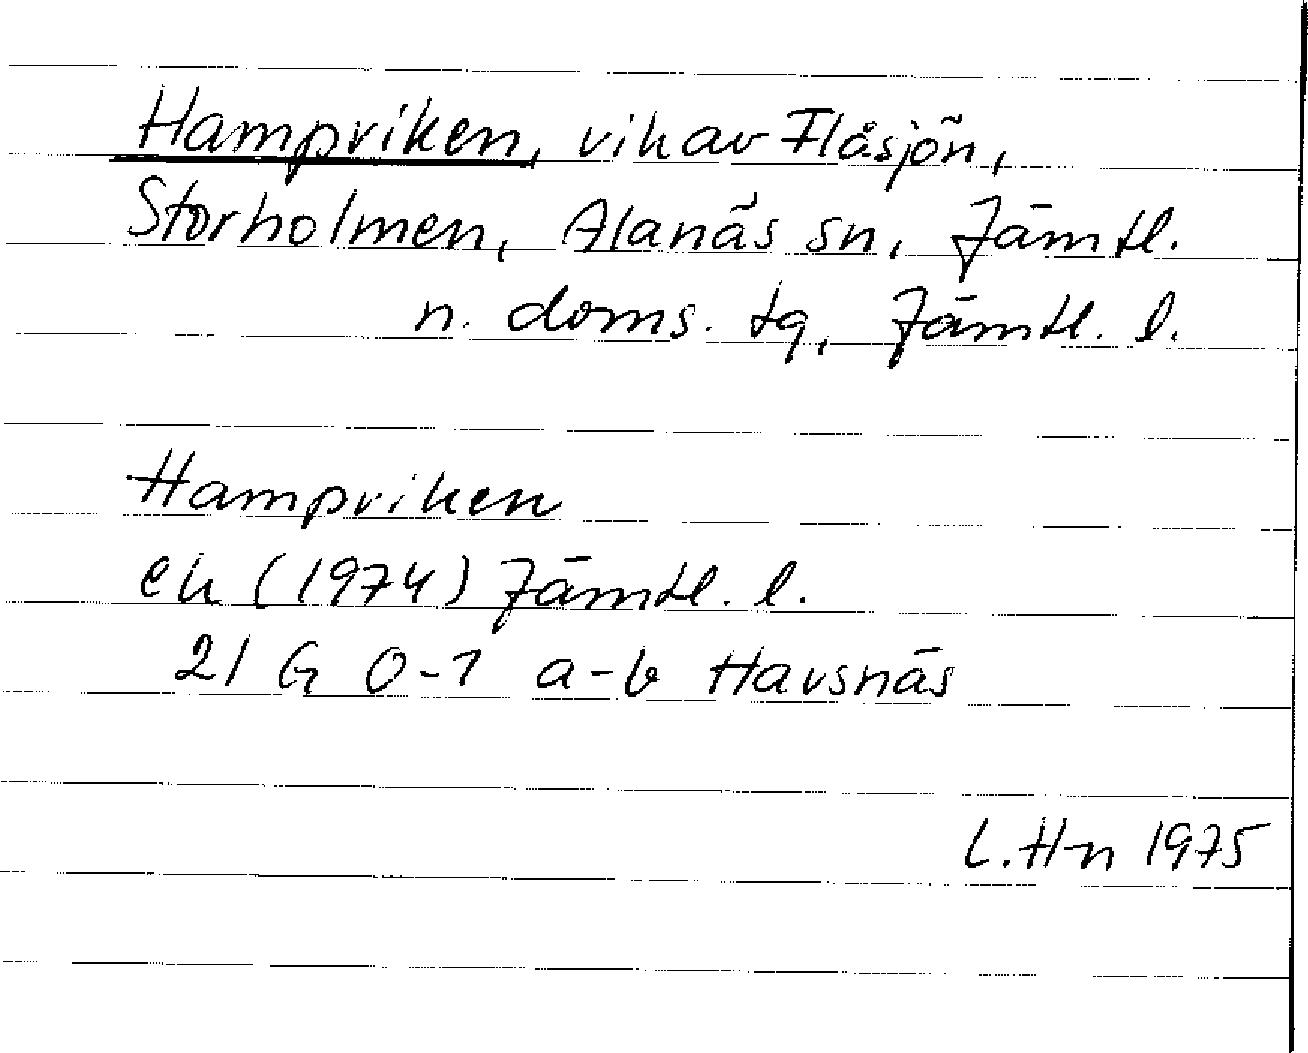 Hampviken, vik av Flåsjön,
Storholmen, Alanäs sn, Jämtl.
n. doms. tg, Jämtl. l.
Hampviken
ek (1974) Jämtl. l.
21 G 0-1 a-b Havsnäs
L. H-n 1975